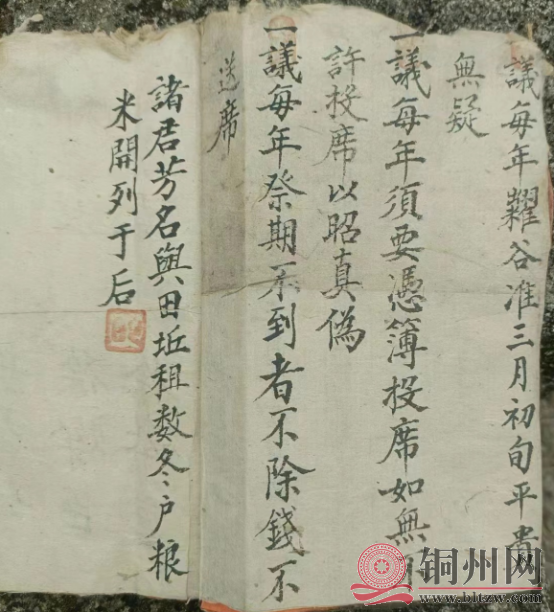 議每年糶谷准三月初旬平貴
無疑
一議每年須要憑簿投席如無不
許投席以昭真偽
一議每年祭期不到者不除錢不
送席
諸君芳名與田坵租数冬户粮
米開列于后
铜州网
www.bltzw.com